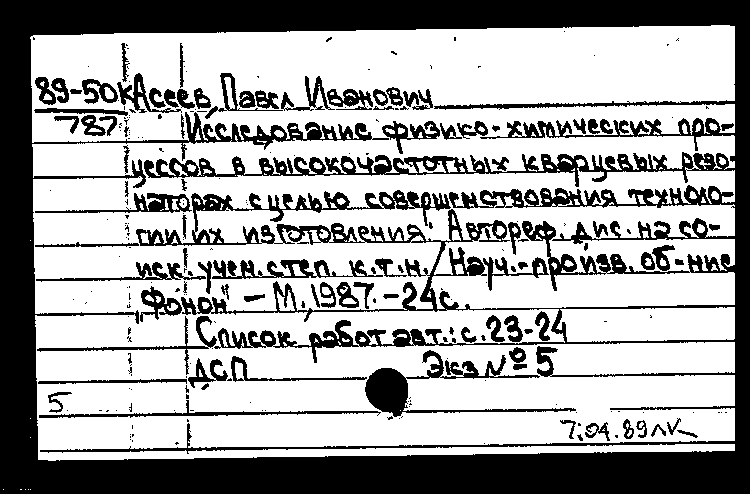 89-50К Асеев, Павел Иванович
787 Исследование физико-химических про-
цессов в высокочастотных кварцевых резо-
наторах с целью совершенствования техноло-
гии их изготовления: Автореф. дис. на со-
иск. учен. степ. к.т.н. / Науч.-произв. об-ние
„Фонон" – М., 1987. – 24 с.
Список работ авт.: с. 23-24
ДСП Экз № 5
5
7.04.89